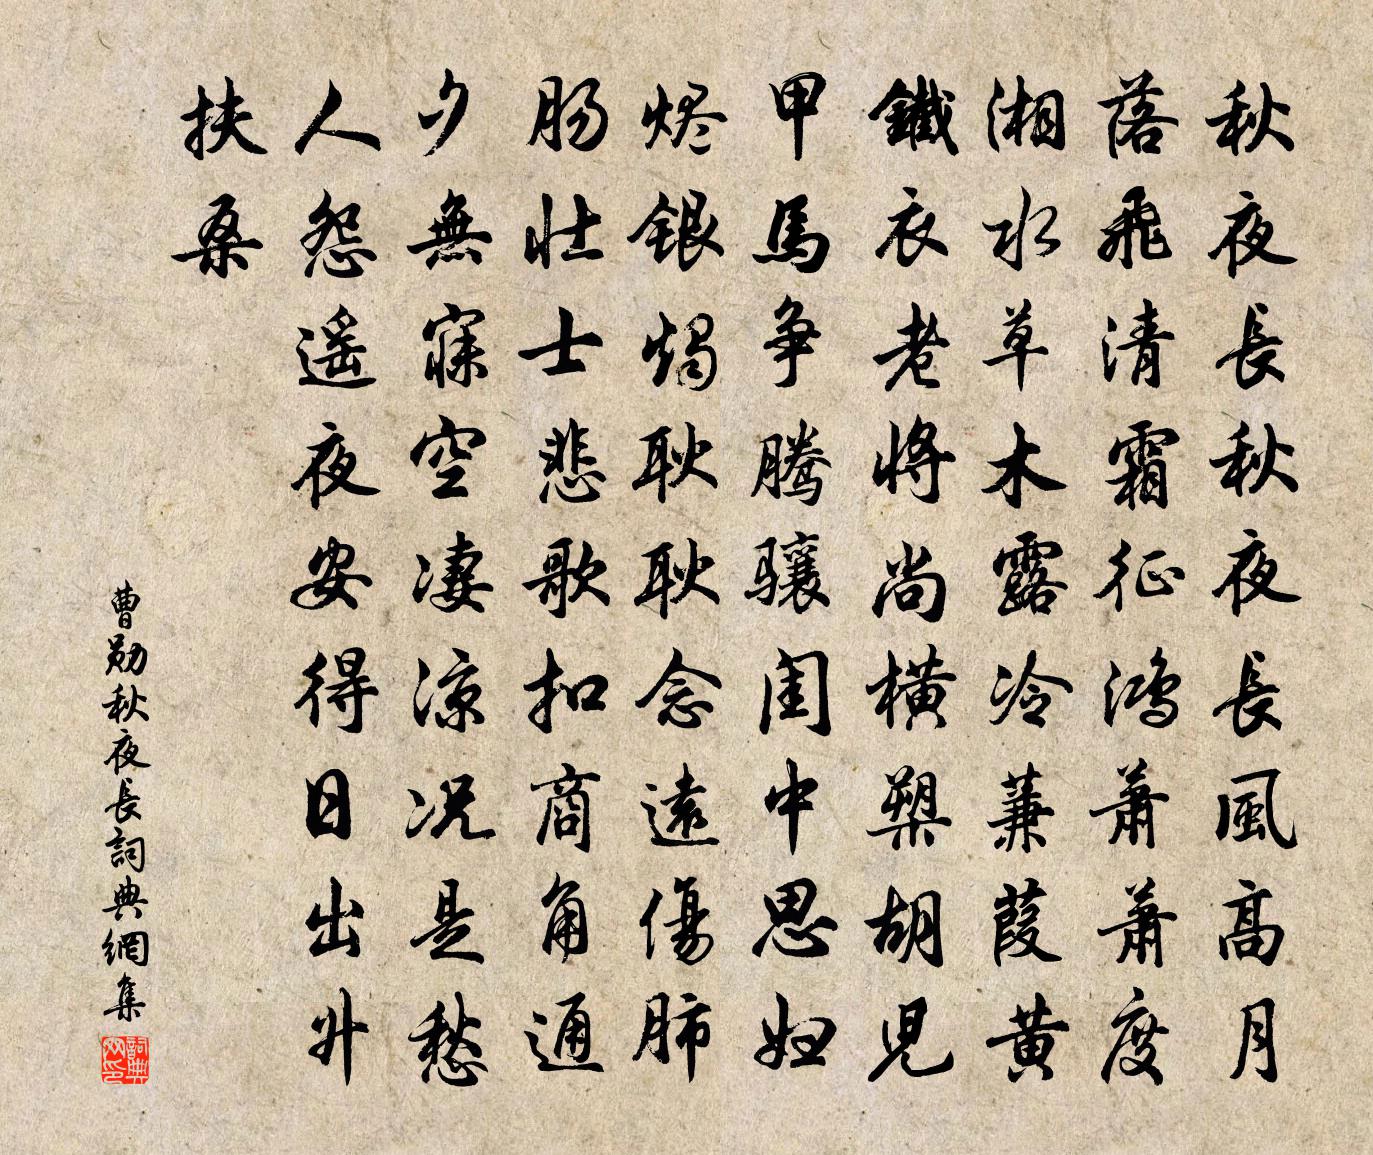 秋夜長秋夜長風高月
落飛清霜征鴻蕭蕭度
湘水草木露冷蒹葭黄
鐵衣老將尚橫槊胡兒
甲馬争騰驤閨中思婦
烬銀燭耿耿念遠傷肺
肠壮士悲歌扣商角通
夕無寐空凄凉况是愁
人怨遥夜安得日出升
扶桑
曹勛秋夜長詞典網集
詞典网印